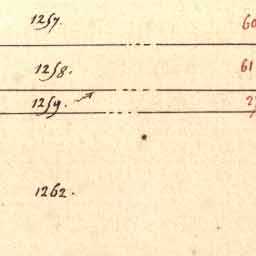 1257. 60
1258. 61
1259.
1262.